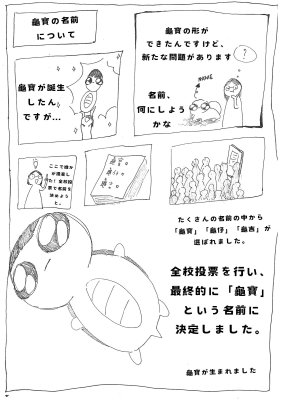 龜寶の名前
について
龜寶が誕生
したん
ですが…
龜寶の形が
できたんですけど、
新たな問題があります
?
名前、
何にしよう
かな
ここで誰か
が提案し
た!全校投
票で名前を
決めよう
と。
龜寶。
龜仔。
龜吉。
たくさんの名前の中から
「龜寶」「龜仔」「龜吉」が
選ばれました。
全校投票を行い、
最終的に「龜寶」
という名前に
決定しました。
龜寶が生まれました